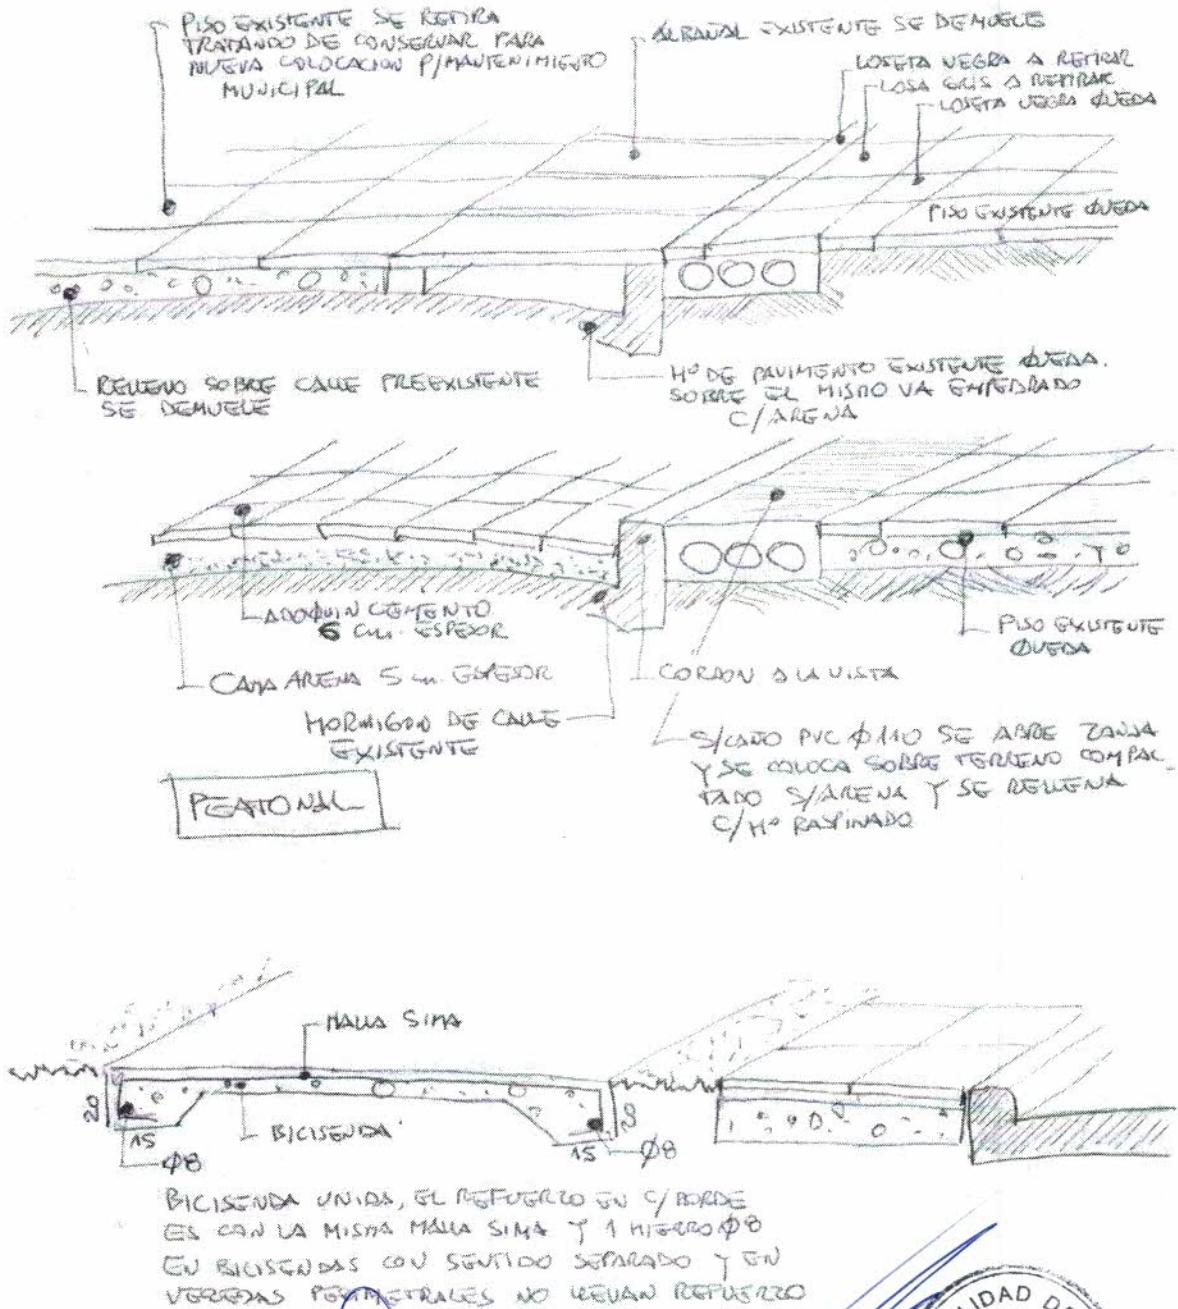 PISO EXISTENTE SE RETIRA
TRATANDO DE CONSERVAR PARA
NUEVA COLOCACION P/MANTENIMIENTO
MUNICIPAL
ALBAÑAL EXISTENTE SE DEMUELE
LOSETA NEGRA A RETIRAR
LOSA GRIS A RETIRAR
LOSETA NEGRA QUEDA
PISO EXISTENTE QUEDA
RELLENO SOBRE CALLE PREEXISTENTE
SE DEMUELE
Hº DE PAVIMENTO EXISTENTE QUEDA.
SOBRE EL MISMO VA EMPEDRADO
C/ARENA
ADOQUIN CEMENTO
6 cm. ESPESOR
CAMA ARENA 5 cm. ESPESOR
HORMIGON DE CALLE
EXISTENTE
PEATONAL
CORDON A LA VISTA
PISO EXISTENTE
QUEDA
S/CAÑO PVC Ø110 SE ABRE ZANJA
Y SE COLOCA SOBRE TERRENO COMPAC_
TADO S/ARENA Y SE RELLENA
C/Hº RASPINADO
MALLA SIMA
20
15
Ø8
BICISENDA
15
Ø8
BICISENDA UNIDA, EL REFUERZO EN C/BORDE
ES CON LA MISMA MALLA SIMA Y 1 HIERRO Ø8
EN BICISENDAS CON SENTIDO SEPARADO Y EN
VEREDAS PERIMETRALES NO LLEVAN REFUERZO